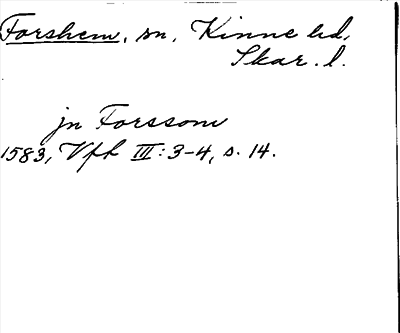 Forshem, sn, Kinne hd,
Skar. l.
jn Forssom
1583, Vfh III: 3-4, s. 14.